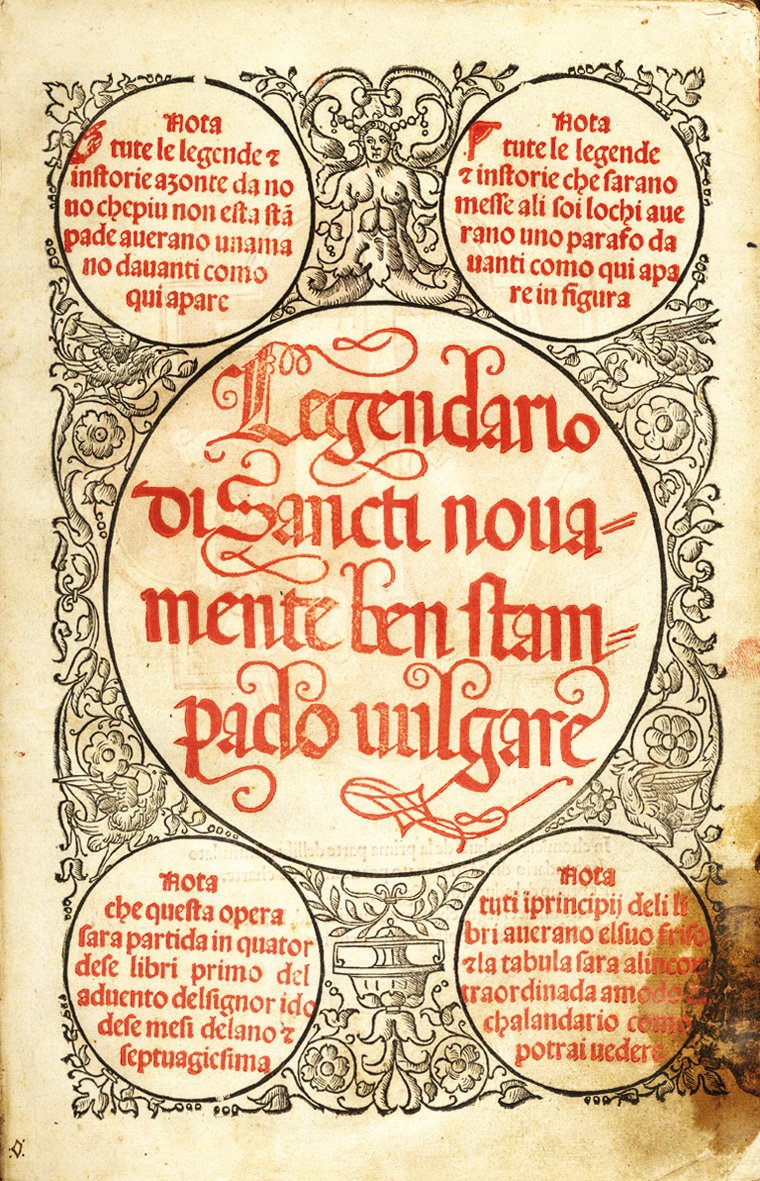 Nota
tute le legende ⁊
instorie azonte da no
uo chepiu non esta stã
pade auerano unama
no dauanti como
qui apare
Nota
tute le legende
⁊ instorie che sarano
messe ali soi lochi aue
rano uno parafo da
uanti como qui apa
re in figura
Legendario
di Sancti noua=
mente ben stam=
pado uulgare
Nota
che questa opera
sara partida in quator
dese libri primo del
aduento delsignor ido
dese mesi delano ⁊
septuagiesima
Nota
tuti iprincipij deli li
bri auerano elsuo friso
⁊ la tabula sara alincon
traordinada amodo
chalandario como
potrai uedere